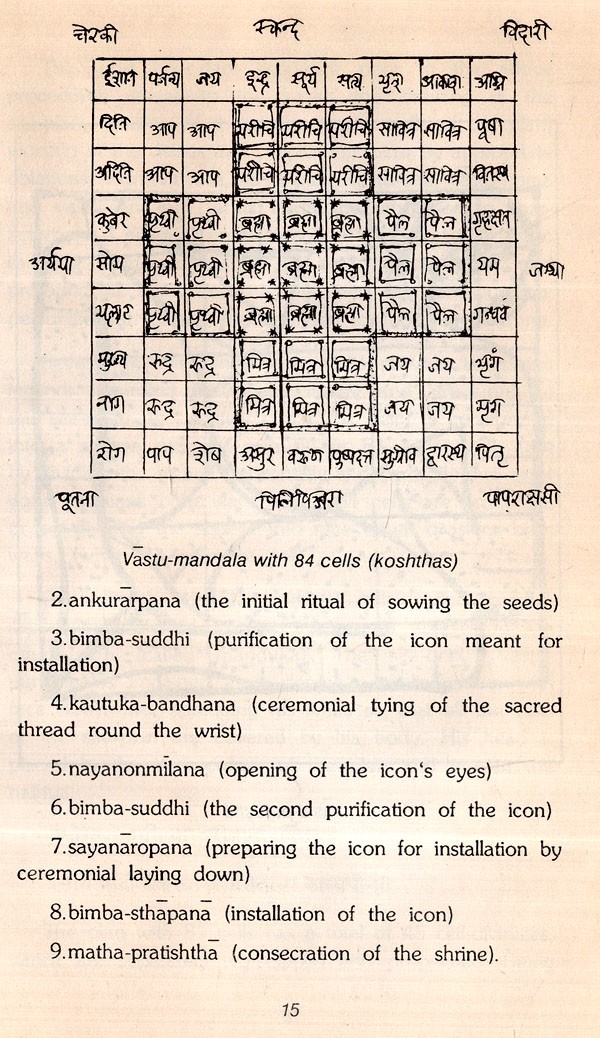 चेरकी स्कन्द विदारी
ईशान पर्जन्य जय इन्द्र सूर्य सत्य भृश आकाश अग्नि
दिति आप आप मरीचि मरीचि मरीचि सावित्र सावित्र पूषा
अदिति आप आप मरीचि मरीचि मरीचि सावित्र सावित्र वितथ
कुबेर पृथ्वी पृथ्वी ब्रह्मा ब्रह्मा ब्रह्मा गृहक्षत
अर्यमा सोम पृथ्वी पृथ्वी ब्रह्मा ब्रह्मा ब्रह्मा यम
पृथ्वी पृथ्वी ब्रह्मा ब्रह्मा ब्रह्मा गन्धर्व
मुख्य रुद्र रुद्र मित्र मित्र मित्र जय जय भृंग
नाग रुद्र रुद्र मित्र मित्र मित्र जय जय मृग
रोग पाप असुर वरुण पुष्पदन्त सुग्रीव द्वारस्थ पितृ
पूतना पिलिपिञ्जरा पापराक्षसी
Vāstu-mandala with 84 cells (koshthas)
2.ankurārpana (the initial ritual of sowing the seeds)
3.bimba-suddhi (purification of the icon meant for
installation)
4.kautuka-bandhana (ceremonial tying of the sacred
thread round the wrist)
5.nayanonmīlana (opening of the icon's eyes)
6.bimba-suddhi (the second purification of the icon)
7.sayanāropana (preparing the icon for installation by
ceremonial laying down)
8.bimba-sthāpanā (installation of the icon)
9.matha-pratishthā (consecration of the shrine).
15